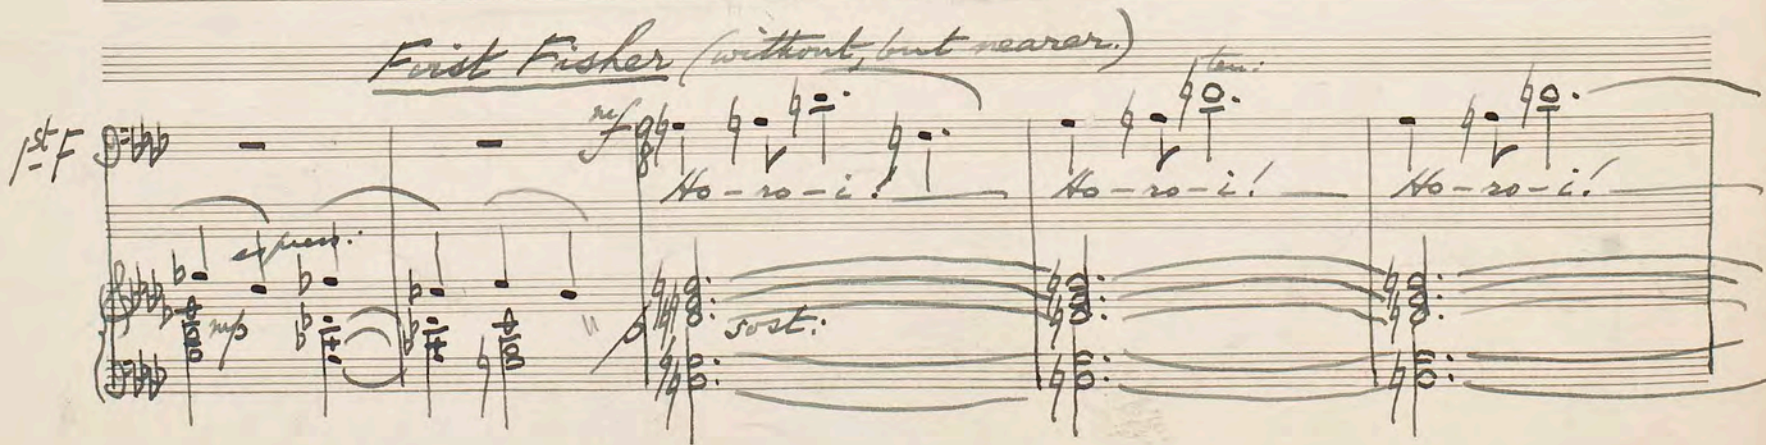 First Fisher (without, but nearer.)
ten:
1st F
mf 9 8
Ho - ro - i! Ho - ro - i! Ho - ro - i!
express:
mp sost: